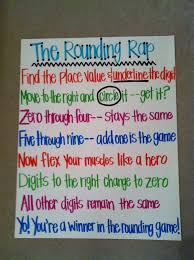 The Rounding Rap
Find the Place Value & underline the digit
Move to the right and circle it -- get it?
Zero through four -- stays the same
Five through nine -- add one is the game
Now flex your muscles like a hero
Digits to the right change to zero
All other digits remain the same
Yo! You're a winner in the rounding game!